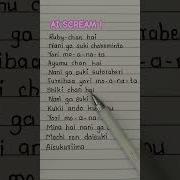 AI SCREAM !
Ruby-chan hai
Nani ga suki
Yori mo-a-na-ta
Ayumu chan hai
Nani ga suki
yori mo-a-na-ta
Shiki chan hai
Nani ga suki
Yori mo-a-na-ta
Mina hai nani ga
Mochi ron daisuki
Aisukuriimu